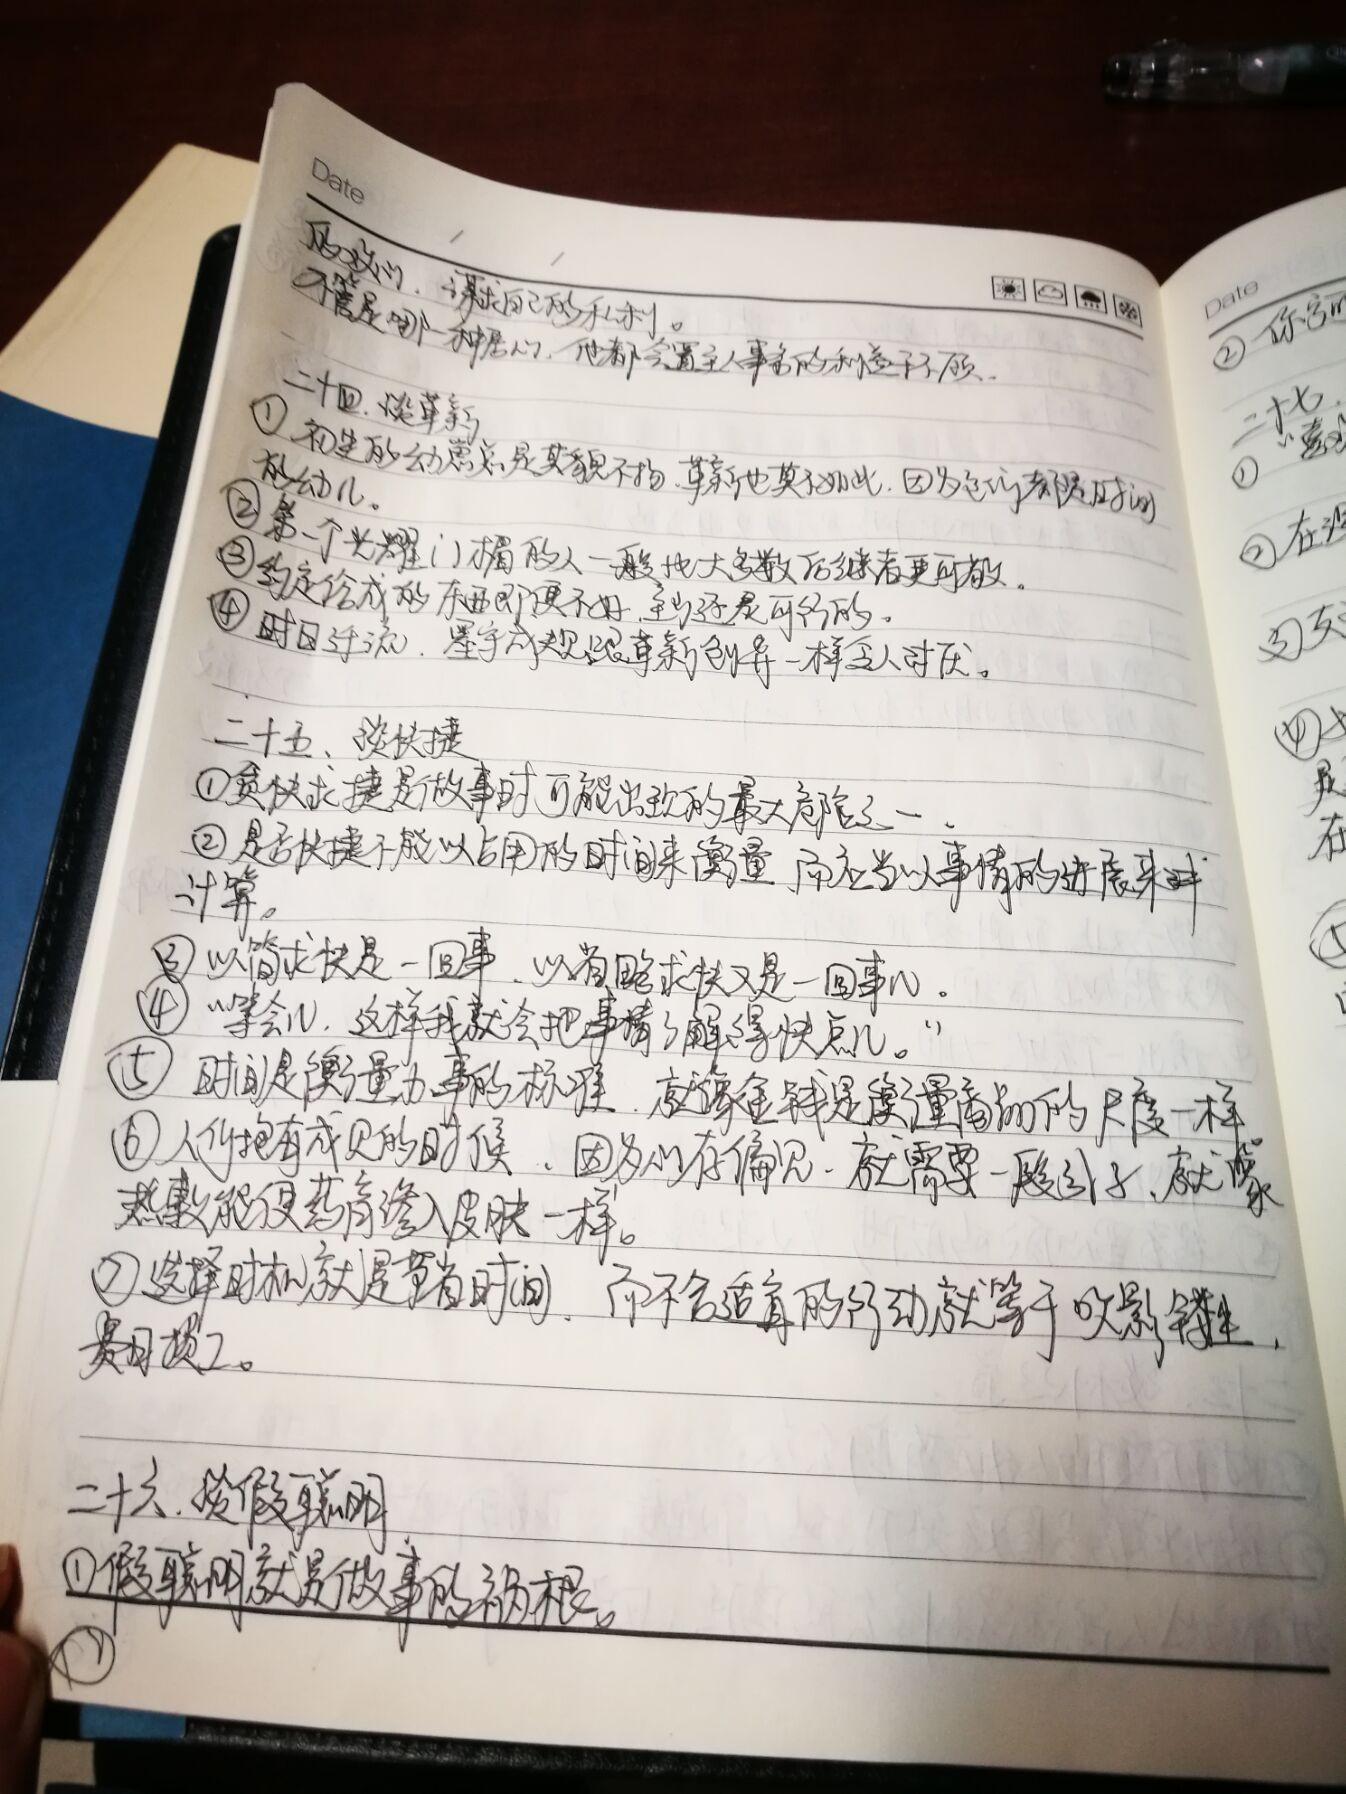 Date
的 谋求自己的私利。
不管是哪一种居心，他都会置主人事务的利益于不顾.
二十四、谈革新
① 初生的幼崽总是其貌不扬，革新也莫不如此，因为它们都是时间
的幼儿。
② 第一个光耀门楣的人一般比大多数后继者更可敬.
③ 约定俗成的东西即便不好，至少还是可行的。
④ 时日迁流，墨守成规跟革新创异一样至人讨厌。
二十五、谈快捷
① 贪快求捷是做事时可能出现的最大危险之一.
② 是否快捷不能以占用的时间来衡量 而应当以事情的进展来
计算。
③ 以简求快是一回事，以省略求快又是一回事儿.
④ “等会儿，这样我就会把事情了解得快点儿。”
⑤ 时间是衡量办事的标准，就像金钱是衡量商品的尺度一样。
⑥ 人们抱有成见的时候，因为心存偏见，就需要一段引子，就像
热敷能使药膏渗入皮肤一样。
⑦ 选择时机就是节省时间，而不合适宜的行动就等于吹影镂尘，
费日损工。
二十六、谈假聪明
① 假聪明就是做事的祸根。
Date
② 你
二十七、
①
② 在
③ 友
④
是
在
⑤